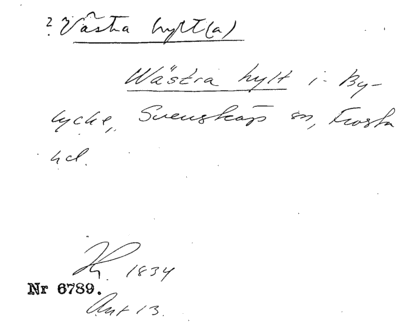 ? Västra hylt(a)
Wästra hylt i By-
lycke, Svensköps sn, Frosta
hd.
1834
Nr 6789.
Ant 13.